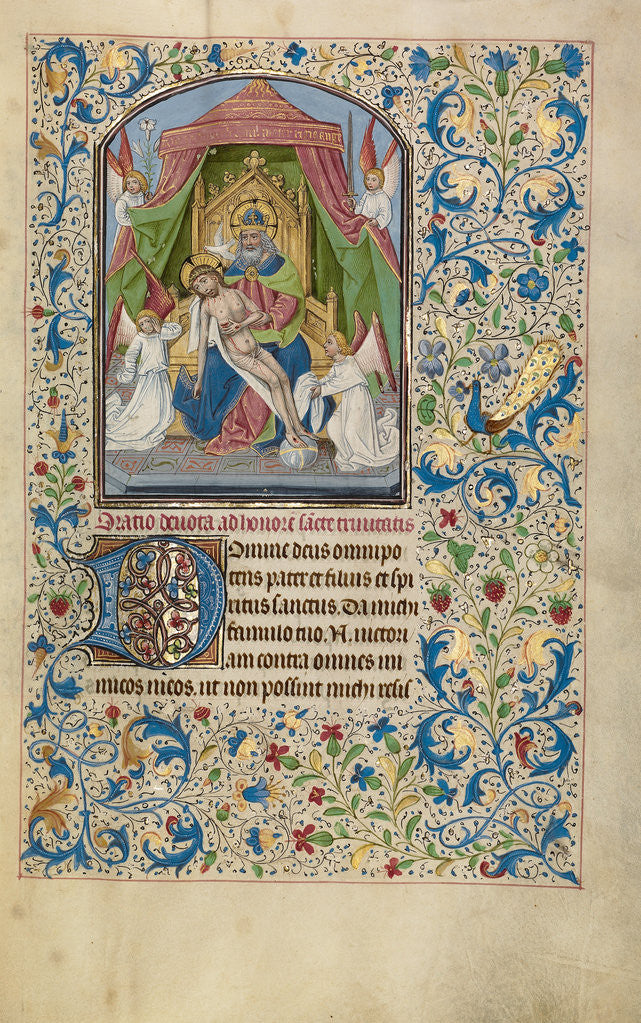 Oratio devota ad honore sancte trinitatis
Domine deus omnipo
tens pater et filius et spi
ritus sanctus. Da michi
famulo tuo .N. victori
am contra omnes ini
micos meos, ut non possint michi resis